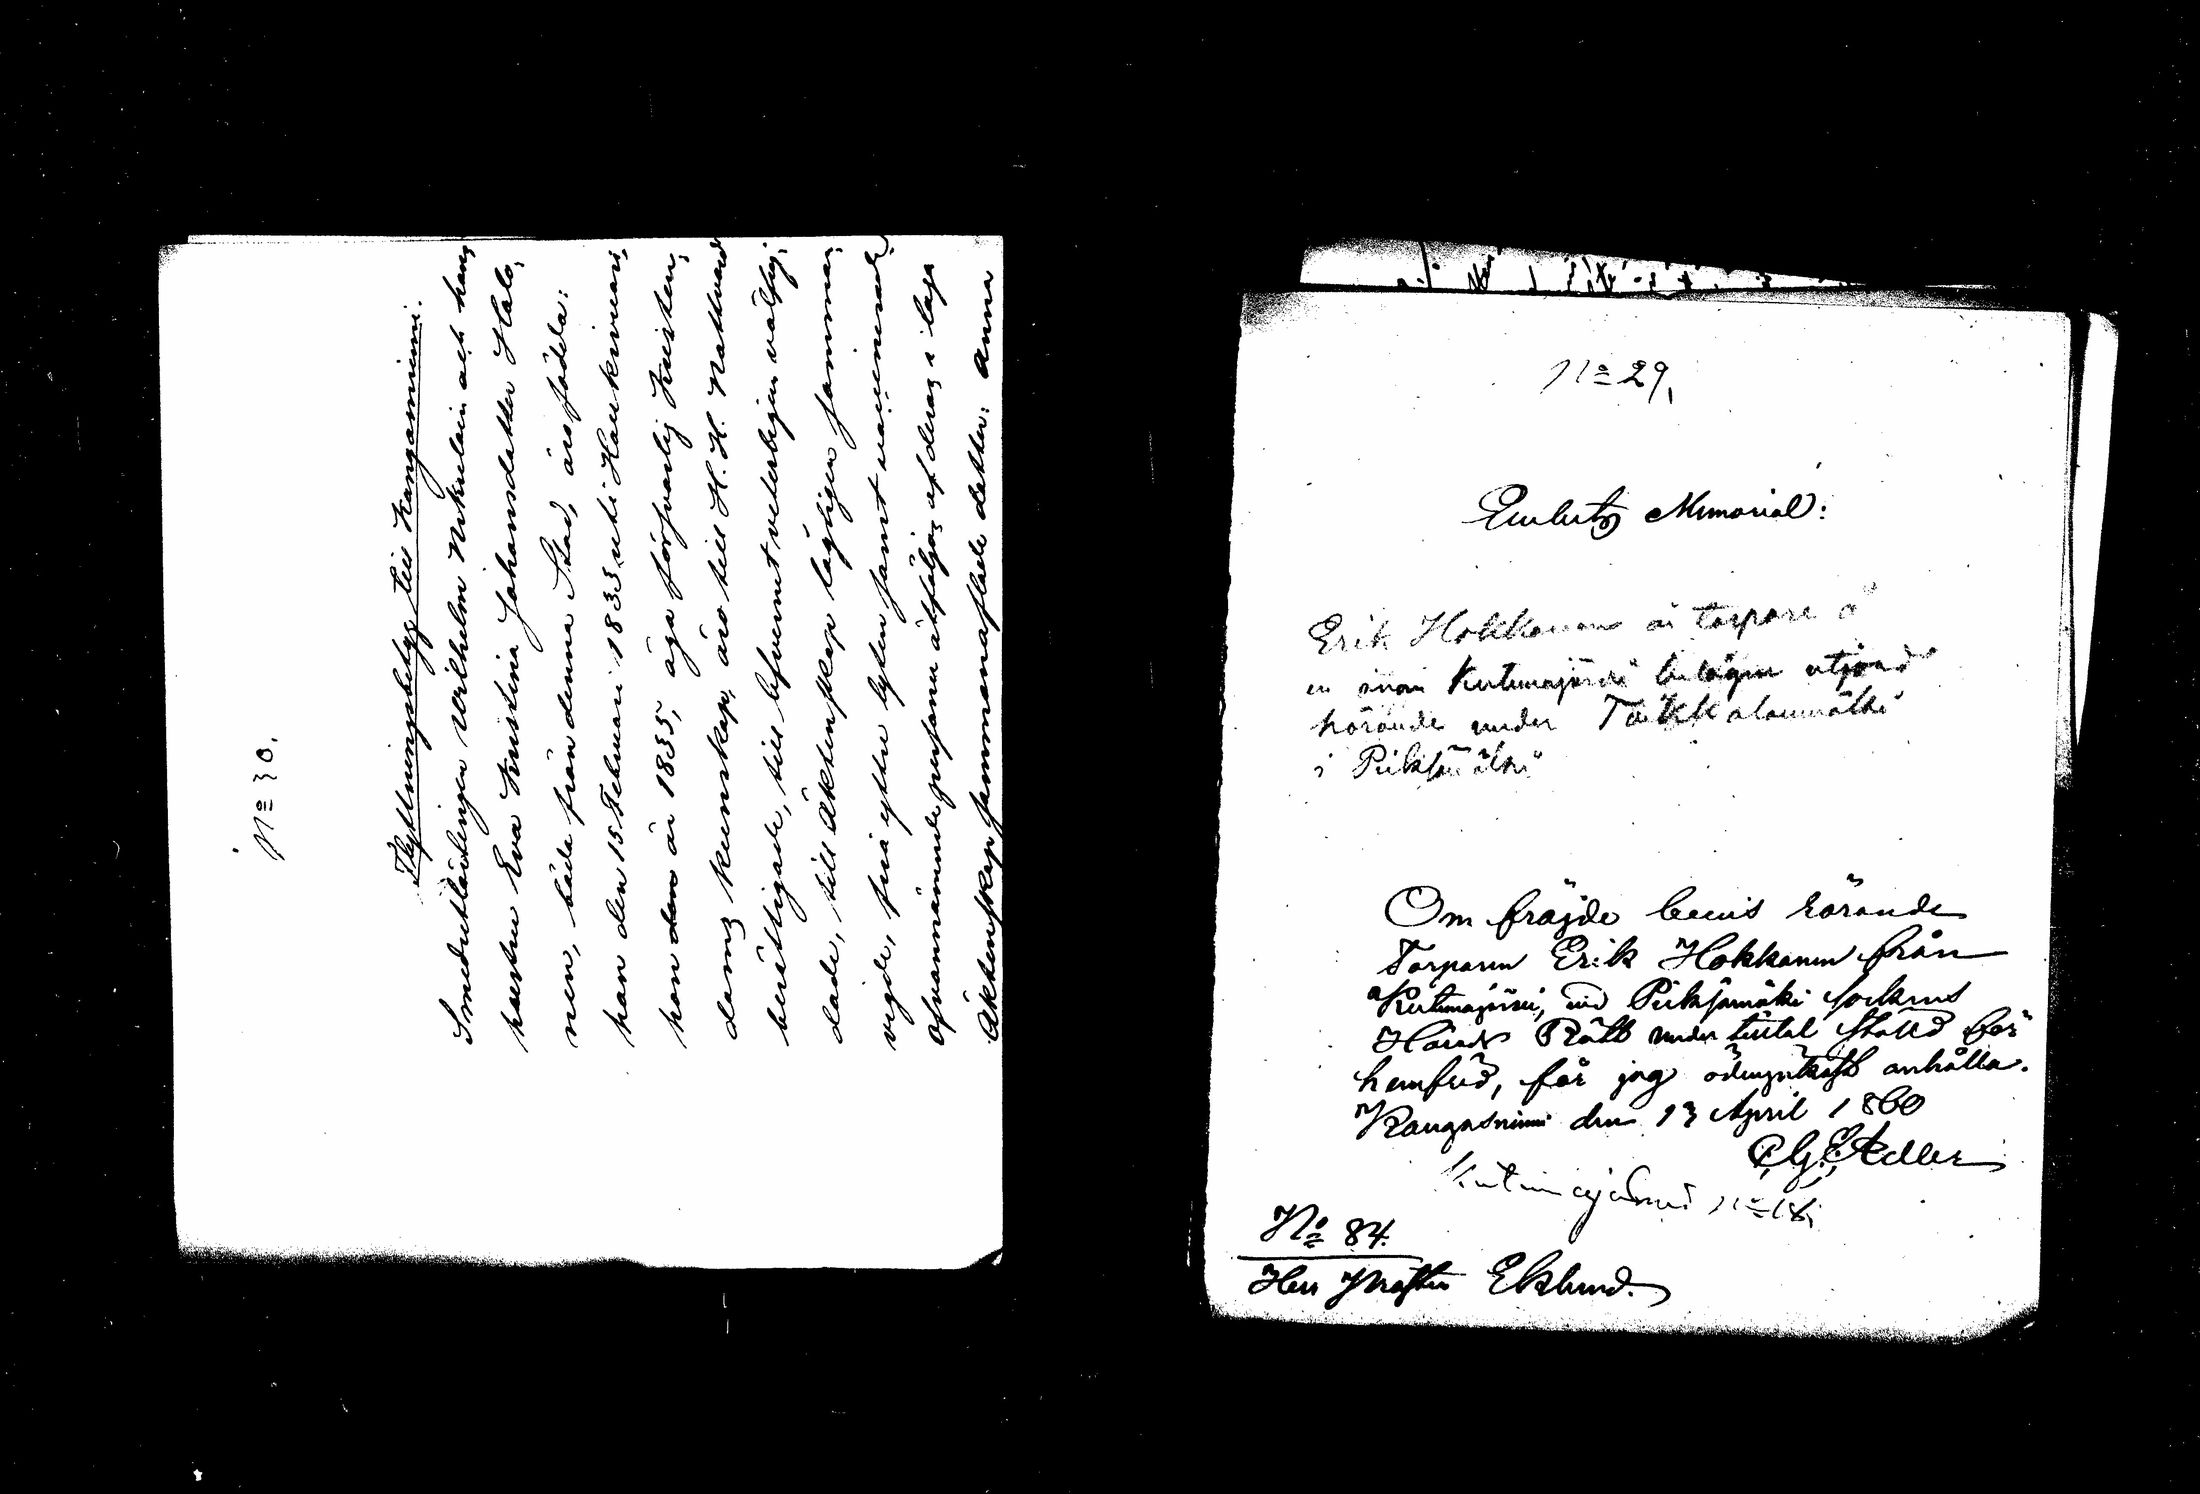 No 30.
Flyttningsbetyg till Kangasniemi.
Smedslärlingen Wilhelm Nikulain och hans
hustru Eva Kristina Johansdotter Halo-
nen, både från denna Stad, äro födda:
han den 15 Februari 1833 uti Haukivuori,
hon den år 1835, äga försvarlig Kristen-
doms kunskap, äro till H. H. Nattvard
berättigade, till lefvernet vederbörligen välfrej-
dade, till Äktenskap lagligen samman-
vigde, fria ifrån lyten samt vaccinerade.
Ofvannämnde personer åtföljas af deras i laga
Äktenskap sammanaflade dotter: Anna
No 29.
Embets Memorial:
Erik Hokkanen är torpare å
en invid Kutemajärvi belägen utjord
hörande under Toikkalanmäki
i Pieksämäki
Om fräjde bevis rörande
Torparen Erik Hokkanen från
Kutemajärvi, vid Pieksämäki sockens
Härads Rätt under tilltal ställd för
hemfrid, får jag ödmjukast anhålla.
Kangasniemi den 13 April 1860
C. G. E. Adler
Kutemajärvi No 18.
No 84.
Herr Eklund.